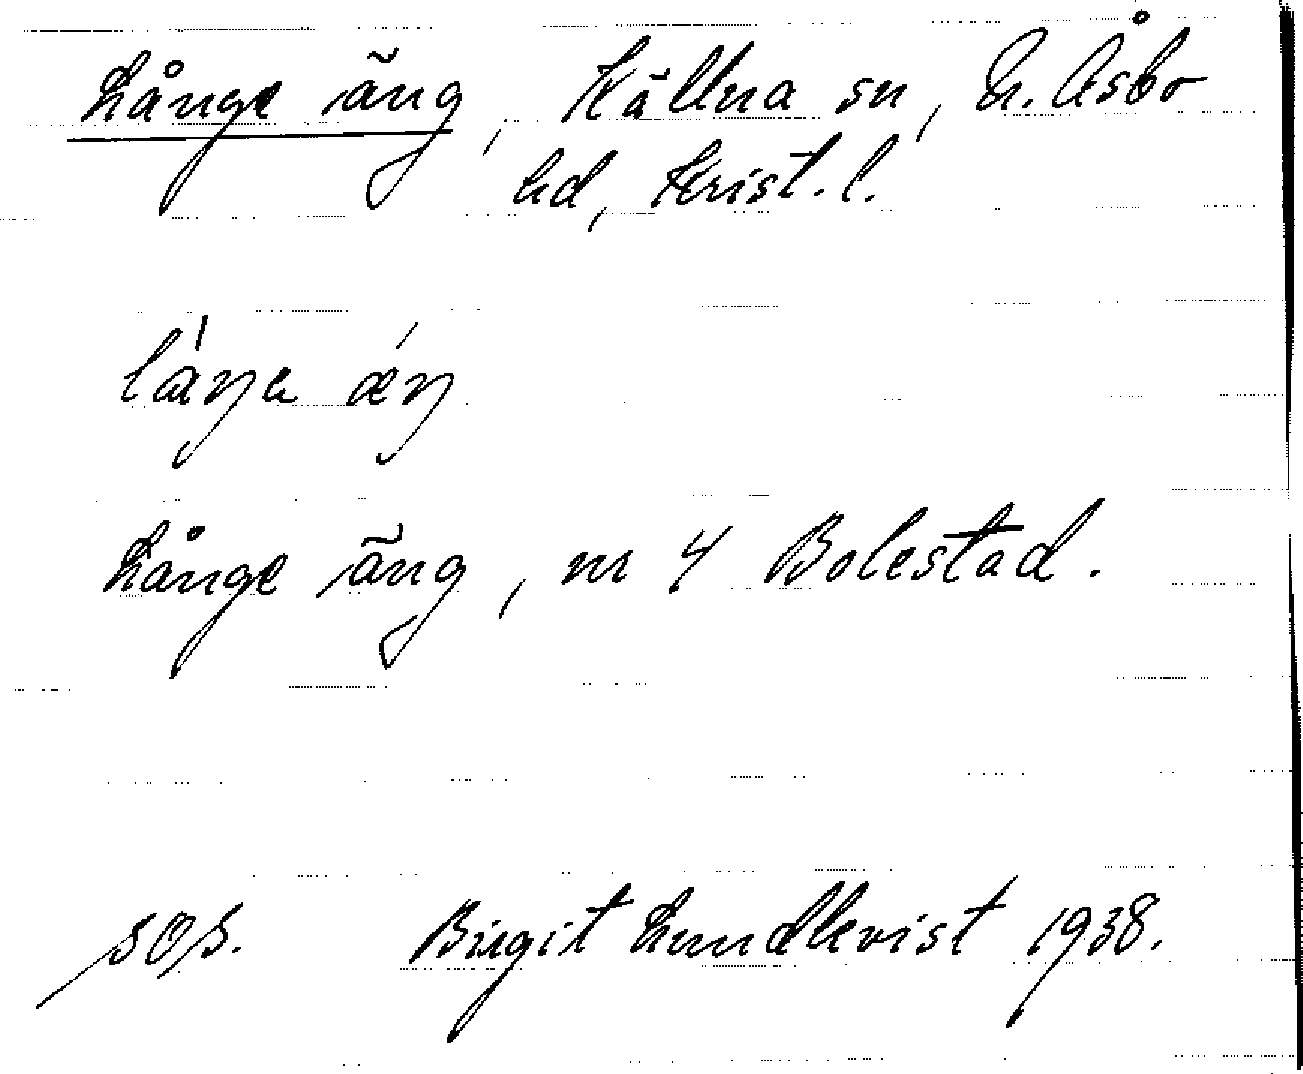 Långe äng, Källna sn, N. Åsbo
hd, Krist. l.
Långe äng, nr 4 Bolestad.
Birgit Lundkvist 1938.